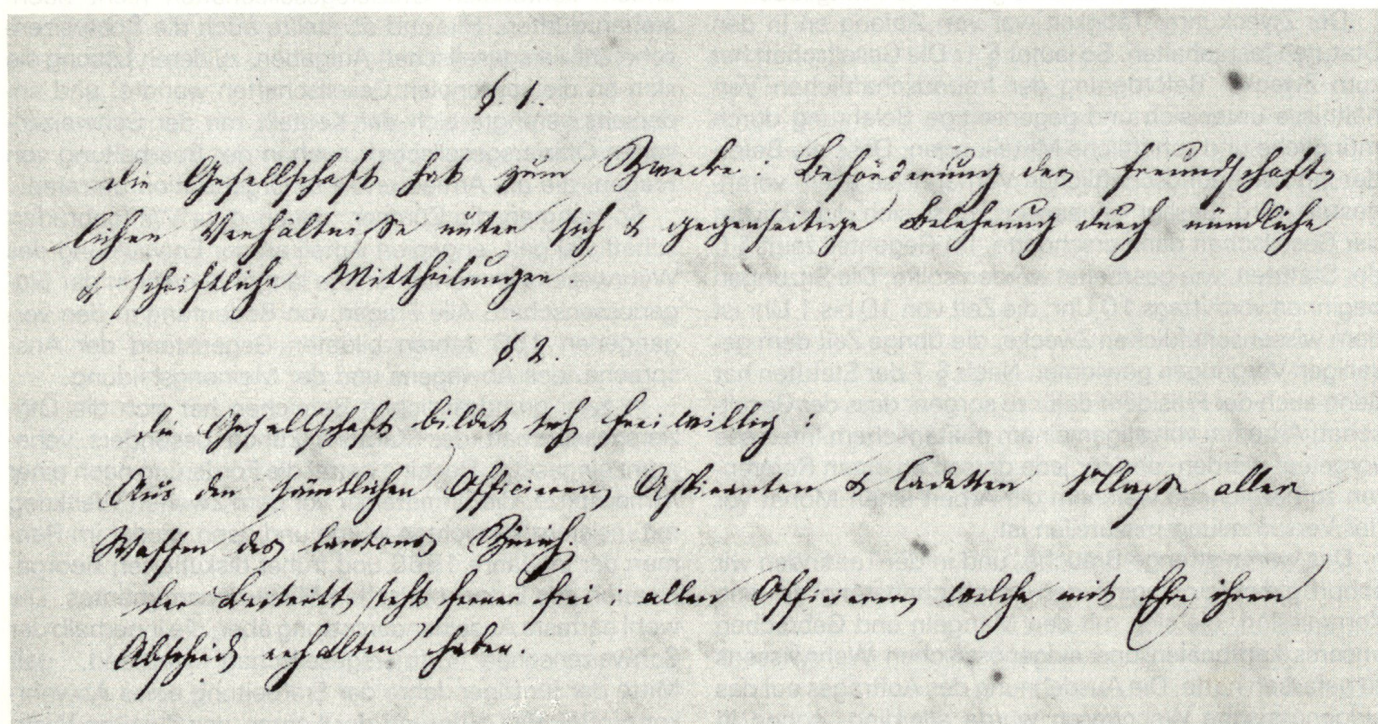 §. 1.
Die Gesellschaft hat zum Zwecke: Beförderung der freundschaft-
lichen Verhältniße unter sich & gegenseitige Belehrung durch mündliche
& schriftliche Mittheilungen
§. 2.
Die Gesellschaft bildet sich freiwillig:
Aus den sämtlichen Officieren, Aspiranten & Cadetten Klaße aller
Waffen des Cantons Zürich
Der Beitritt steht ferner frei: allen Officieren, welche mit Ehre ihren
Abschied erhalten haben.